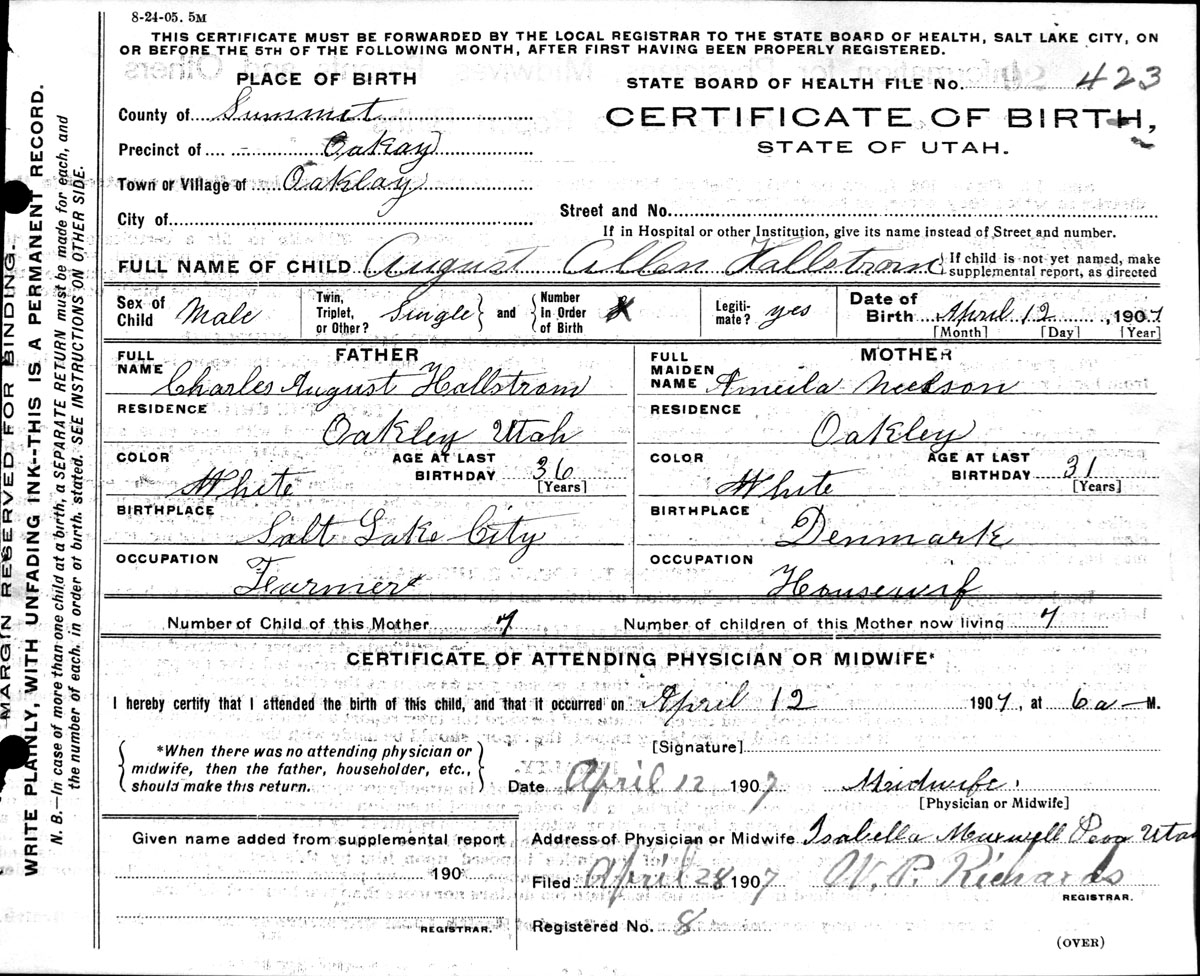 8-24-05. 5M
THIS CERTIFICATE MUST BE FORWARDED BY THE LOCAL REGISTRAR TO THE STATE BOARD OF HEALTH, SALT LAKE CITY, ON
OR BEFORE THE 5TH OF THE FOLLOWING MONTH, AFTER FIRST HAVING BEEN PROPERLY REGISTERED.
PLACE OF BIRTH
STATE BOARD OF HEALTH FILE No. 423
County of Summit
CERTIFICATE OF BIRTH,
STATE OF UTAH.
Precinct of Oakay
Town or Village of Oaklay
City of
Street and No.
If in Hospital or other Institution, give its name instead of Street and number.
FULL NAME OF CHILD August Allen Hallstrom { If child is not yet named, make
supplemental report, as directed
Sex of Child Male
Twin, Triplet, or Other? Single } and { Number In Order of Birth
Legiti- mate? yes
Date of Birth April 12, 1907
[Month] [Day] [Year]
FATHER
FULL NAME Charles August Hallstrom
RESIDENCE Oakley Utah
COLOR White AGE AT LAST BIRTHDAY 36 [Years]
BIRTHPLACE Salt Lake City
OCCUPATION Farmer
MOTHER
FULL MAIDEN NAME Ameila
RESIDENCE Oakley
COLOR White AGE AT LAST BIRTHDAY 31 [Years]
BIRTHPLACE Denmark
OCCUPATION Housewif
Number of Child of this Mother 7 Number of children of this Mother now living 7
CERTIFICATE OF ATTENDING PHYSICIAN OR MIDWIFE*
I hereby certify that I attended the birth of this child, and that it occurred on April 12 1907, at 6a M.
{ *When there was no attending physician or
midwife, then the father, householder, etc.,
should make this return. }
[Signature]
Date April 12 1907 Midwife
[Physician or Midwife]
Given name added from supplemental report
190
REGISTRAR.
Address of Physician or Midwife Isabella Maxwell Peoa Utah
Filed April 28 1907 W. P. Richards
REGISTRAR.
Registered No. 8
(OVER)
MARGIN RESERVED FOR BINDING.
WRITE PLAINLY, WITH UNFADING INK--THIS IS A PERMANENT RECORD.
N. B.—In case of more than one child at a birth, a SEPARATE RETURN must be made for each, and
the number of each, in order of birth, stated. SEE INSTRUCTIONS ON OTHER SIDE.